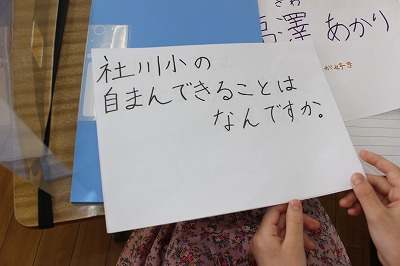 社川小の
自まんできることは
なんですか。
さわ
澤 あかり
が好き